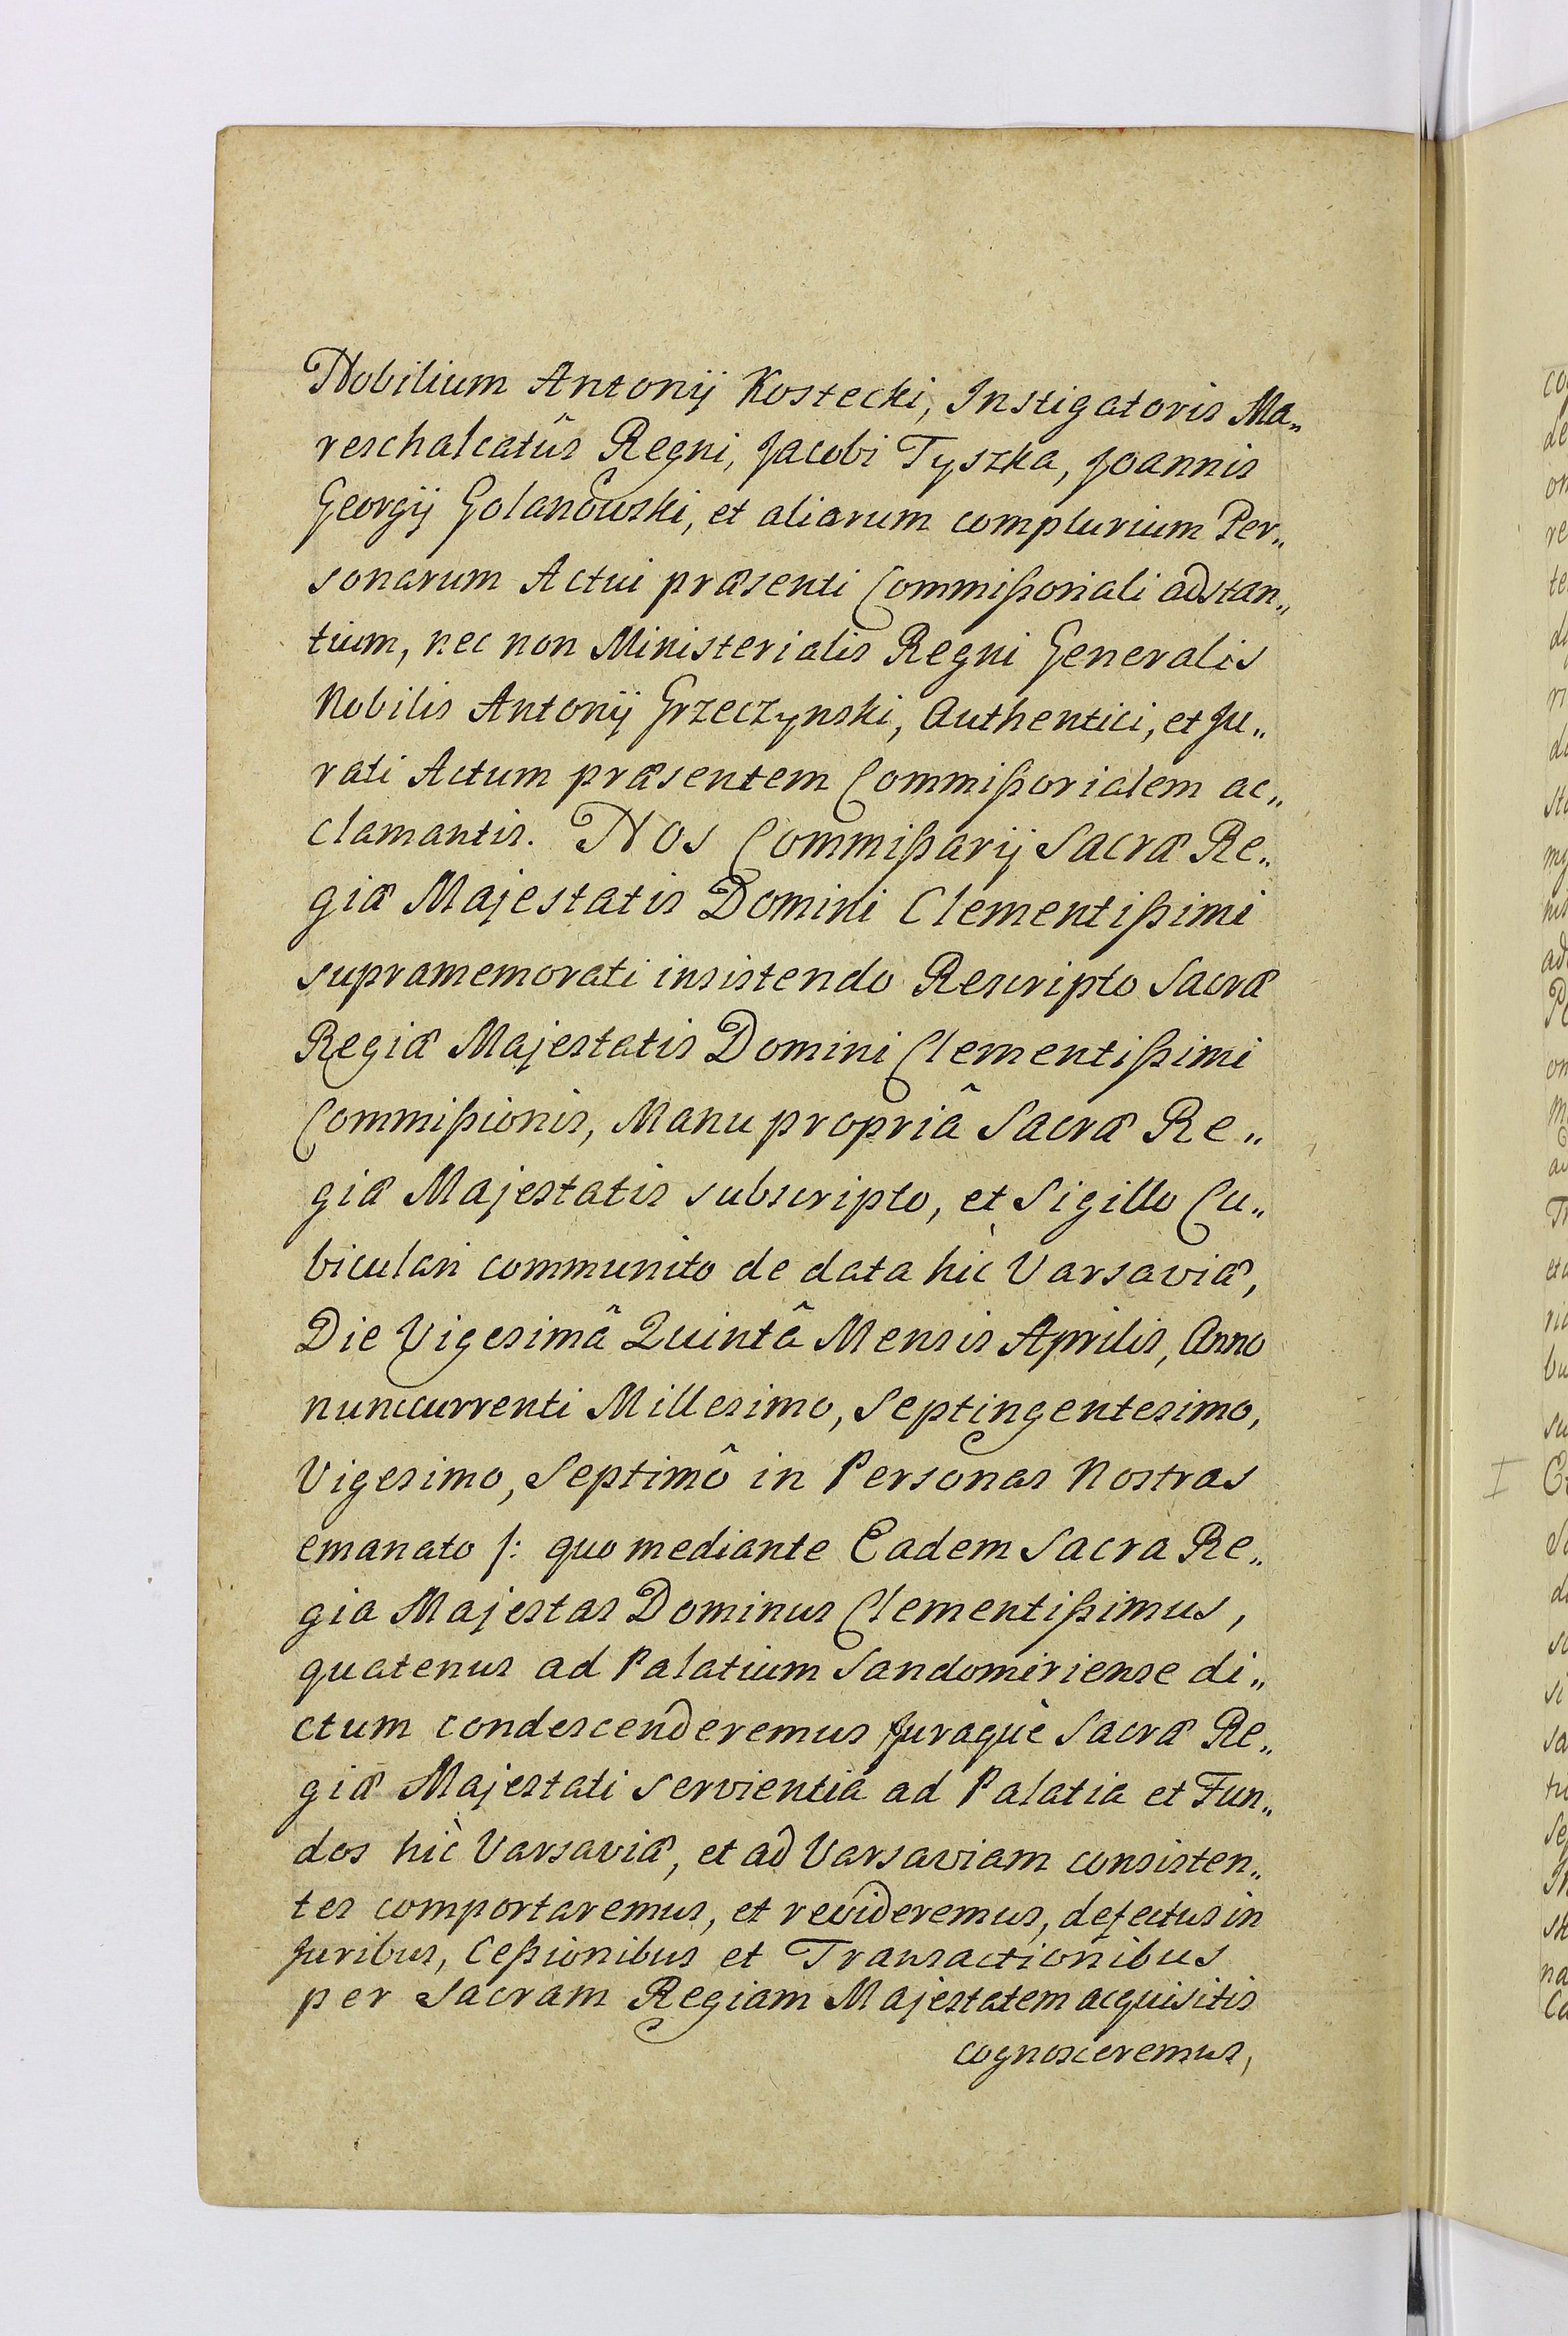 Nobilium Antonij Kostecki, Instigatoris Ma„
reschalcatûs Regni, Jacobi Tyszka, Joannis
Georgij Golanowski, et aliarum complurium Per„
sonarum Actui præsenti Commißoriali adstan„
tium, nec non Ministerialis Regni Generalis
Nobilis Antonij Grzeczynski, Authentici, et Ju„
rati Actum præsentem Commißorialem ac„
clamantis. Nos Commißarij Sacræ Re„
giæ Majestatis Domini Clementißimi
supramemorati insistendo Rescripto Sacræ
Regiæ Majestatis Domini Clementißimi
Commißionis, Manu propriâ Sacræ Re„
giæ Majestatis subscripto, et Sigillo Cu„
biculari communito de data hìc Varsaviæ,
Die Vigesimâ Quintâ Mensis Aprilis, Anno
nunccurrenti Millesimo, Septingentesimo,
Vigesimo, Septimô in Personas Nostras
emanato /: quo mediante Eadem Sacra Re„
gia Majestas Dominus Clementißimus,
quatenus ad Palatium Sandomiriense di„
ctum condescenderemus Juraquè Sacræ Re„
giæ Majestati servientia ad Palatia et Fun„
dos hìc Varsaviæ, et ad Varsaviam consisten„
tes comportaremus, et revideremus, defectus in
Juribus, Ceßionibus et Transactionibus
per Sacram Regiam Majestatem acquisitis
cognosceremus,